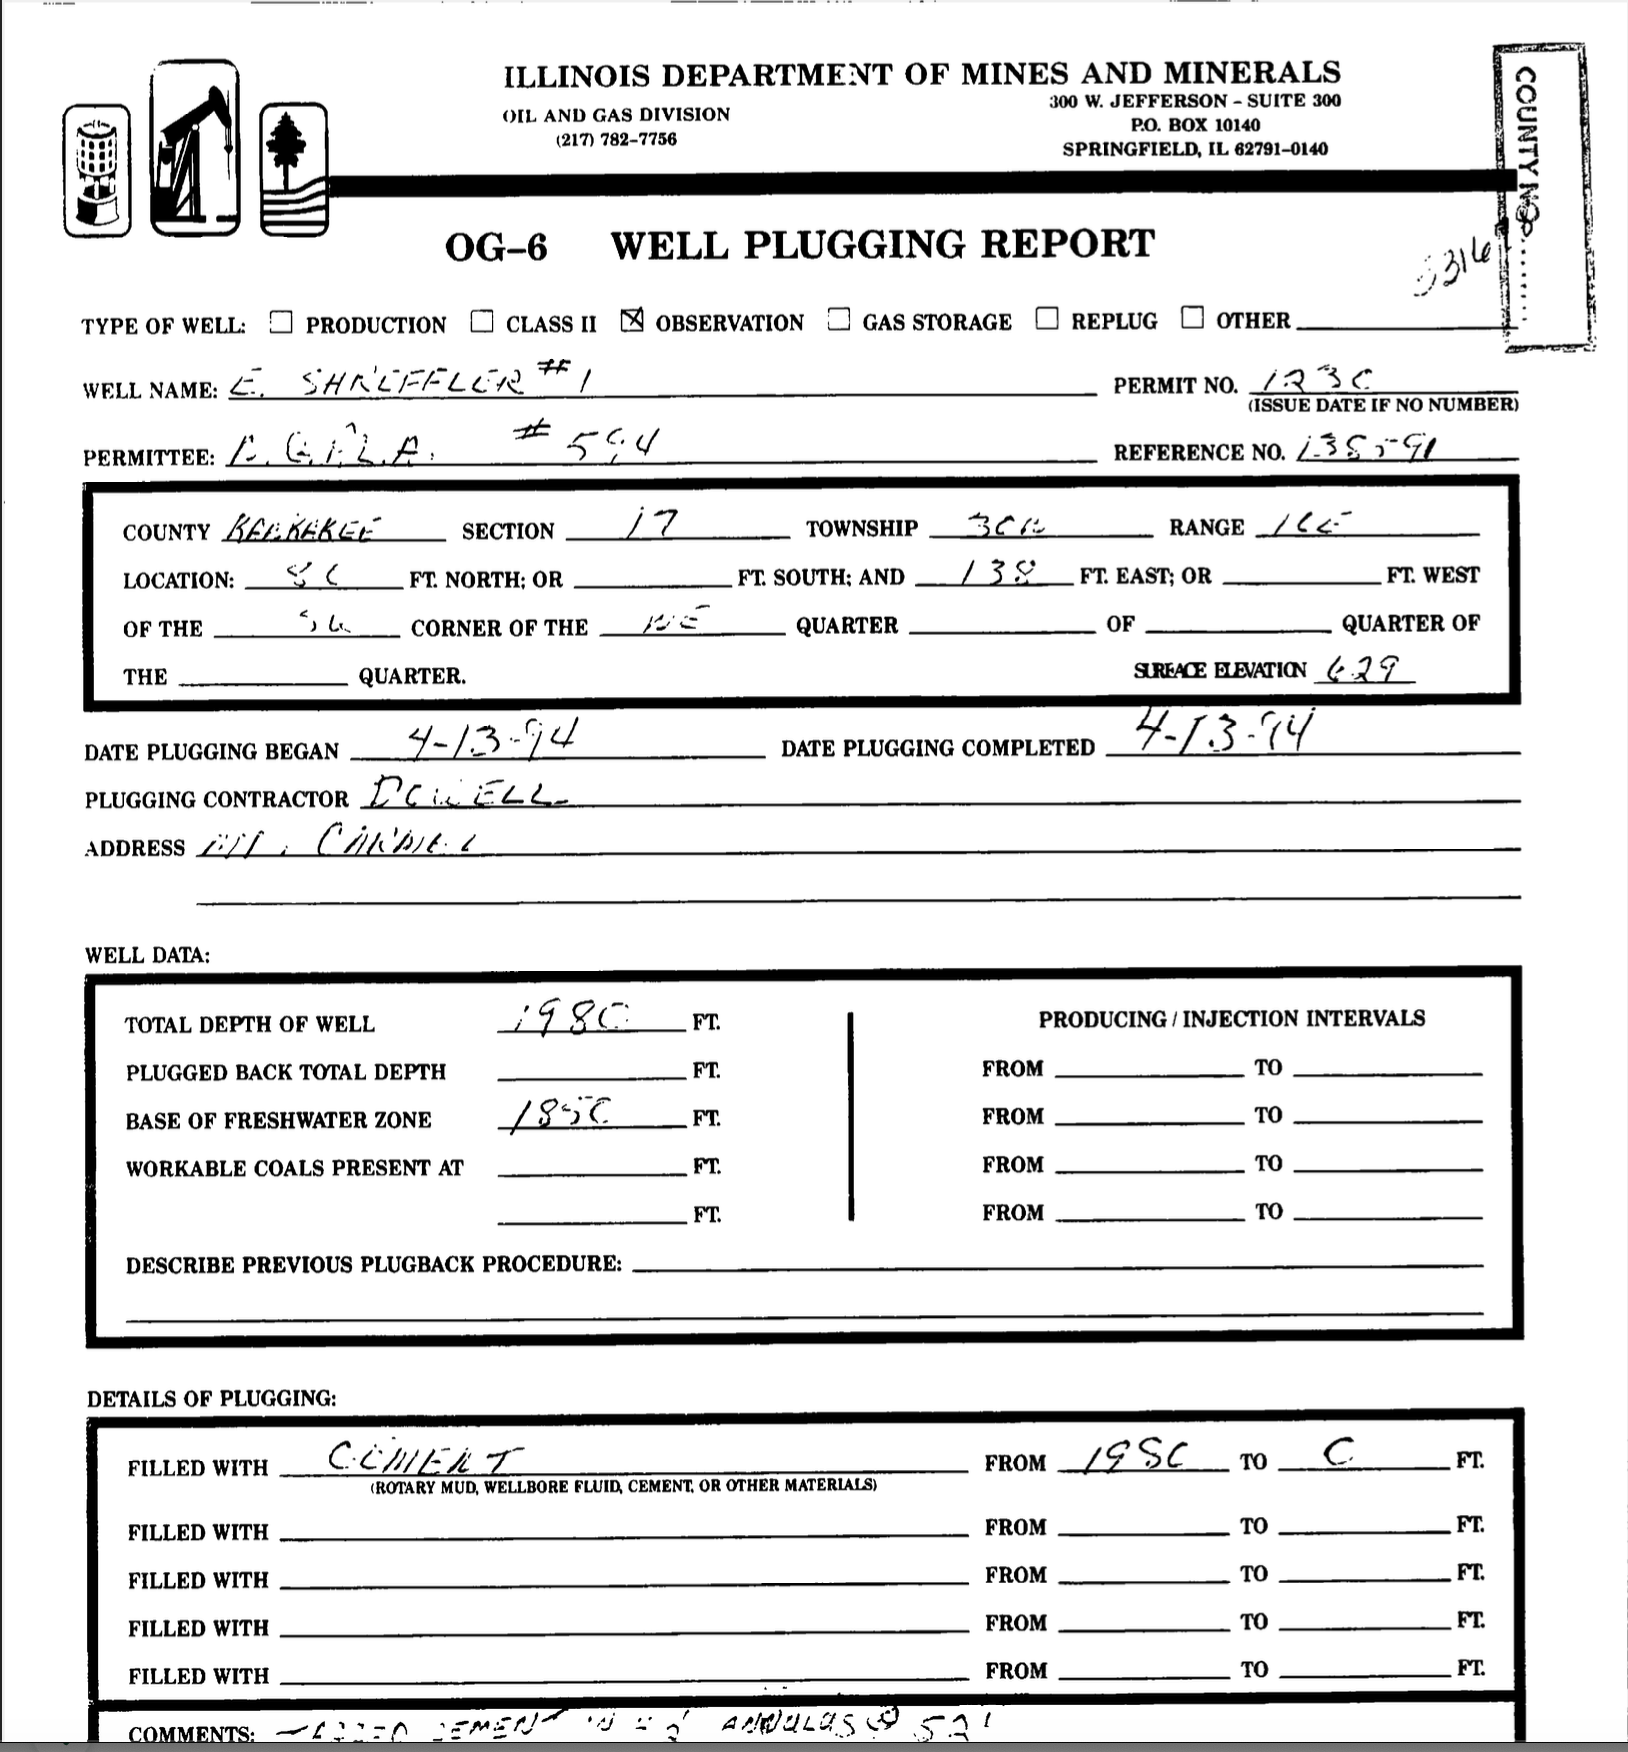 ILLINOIS DEPARTMENT OF MINES AND MINERALS
OIL AND GAS DIVISION
(217) 782-7756
300 W. JEFFERSON - SUITE 300
P.O. BOX 10140
SPRINGFIELD, IL 62791-0140
COUNTY NO.
OG-6 WELL PLUGGING REPORT
TYPE OF WELL: ☐ PRODUCTION ☐ CLASS II ☒ OBSERVATION ☐ GAS STORAGE ☐ REPLUG ☐ OTHER
WELL NAME: E. SHREFFLER #1 PERMIT NO. 1230
(ISSUE DATE IF NO NUMBER)
PERMITTEE: # 594 REFERENCE NO.
COUNTY KANKAKEE SECTION 17 TOWNSHIP 30N RANGE 10E
LOCATION: 80 FT. NORTH; OR FT. SOUTH; AND 138 FT. EAST; OR FT. WEST
OF THE SW CORNER OF THE NE QUARTER OF QUARTER OF
THE QUARTER. SURFACE ELEVATION 629
DATE PLUGGING BEGAN 4-13-94 DATE PLUGGING COMPLETED 4-13-94
PLUGGING CONTRACTOR DOWELL
ADDRESS MT. CARMEL
WELL DATA:
TOTAL DEPTH OF WELL 1980 FT. PRODUCING / INJECTION INTERVALS
PLUGGED BACK TOTAL DEPTH FT. FROM TO
BASE OF FRESHWATER ZONE 1850 FT. FROM TO
WORKABLE COALS PRESENT AT FT. FROM TO
FT. FROM TO
DESCRIBE PREVIOUS PLUGBACK PROCEDURE:
DETAILS OF PLUGGING:
FILLED WITH CEMENT FROM 1980 TO 0 FT.
(ROTARY MUD, WELLBORE FLUID, CEMENT, OR OTHER MATERIALS)
FILLED WITH FROM TO FT.
FILLED WITH FROM TO FT.
FILLED WITH FROM TO FT.
FILLED WITH FROM TO FT.
COMMENTS: CEMENT IN ANNULUS @ 52'